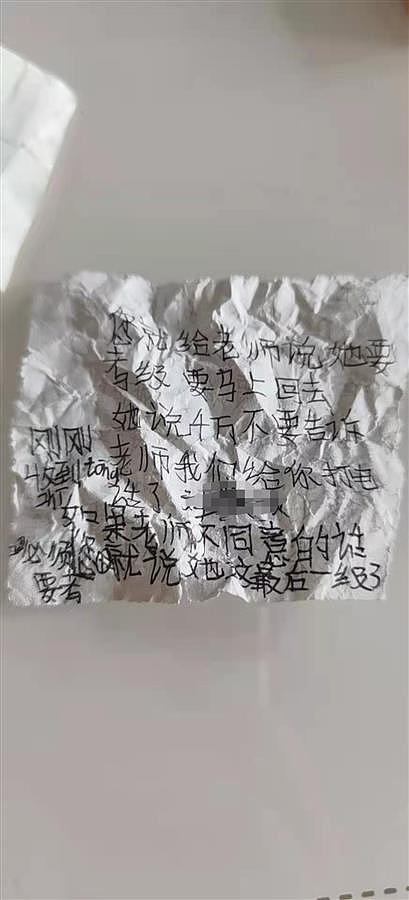 您就给老师说她要
考级 要马上回去
她说千万不要告诉
老师我们给你打电
话了
如果老师不同意的话
您就说她这最后一级了
刚刚
收到tong
必须
要考